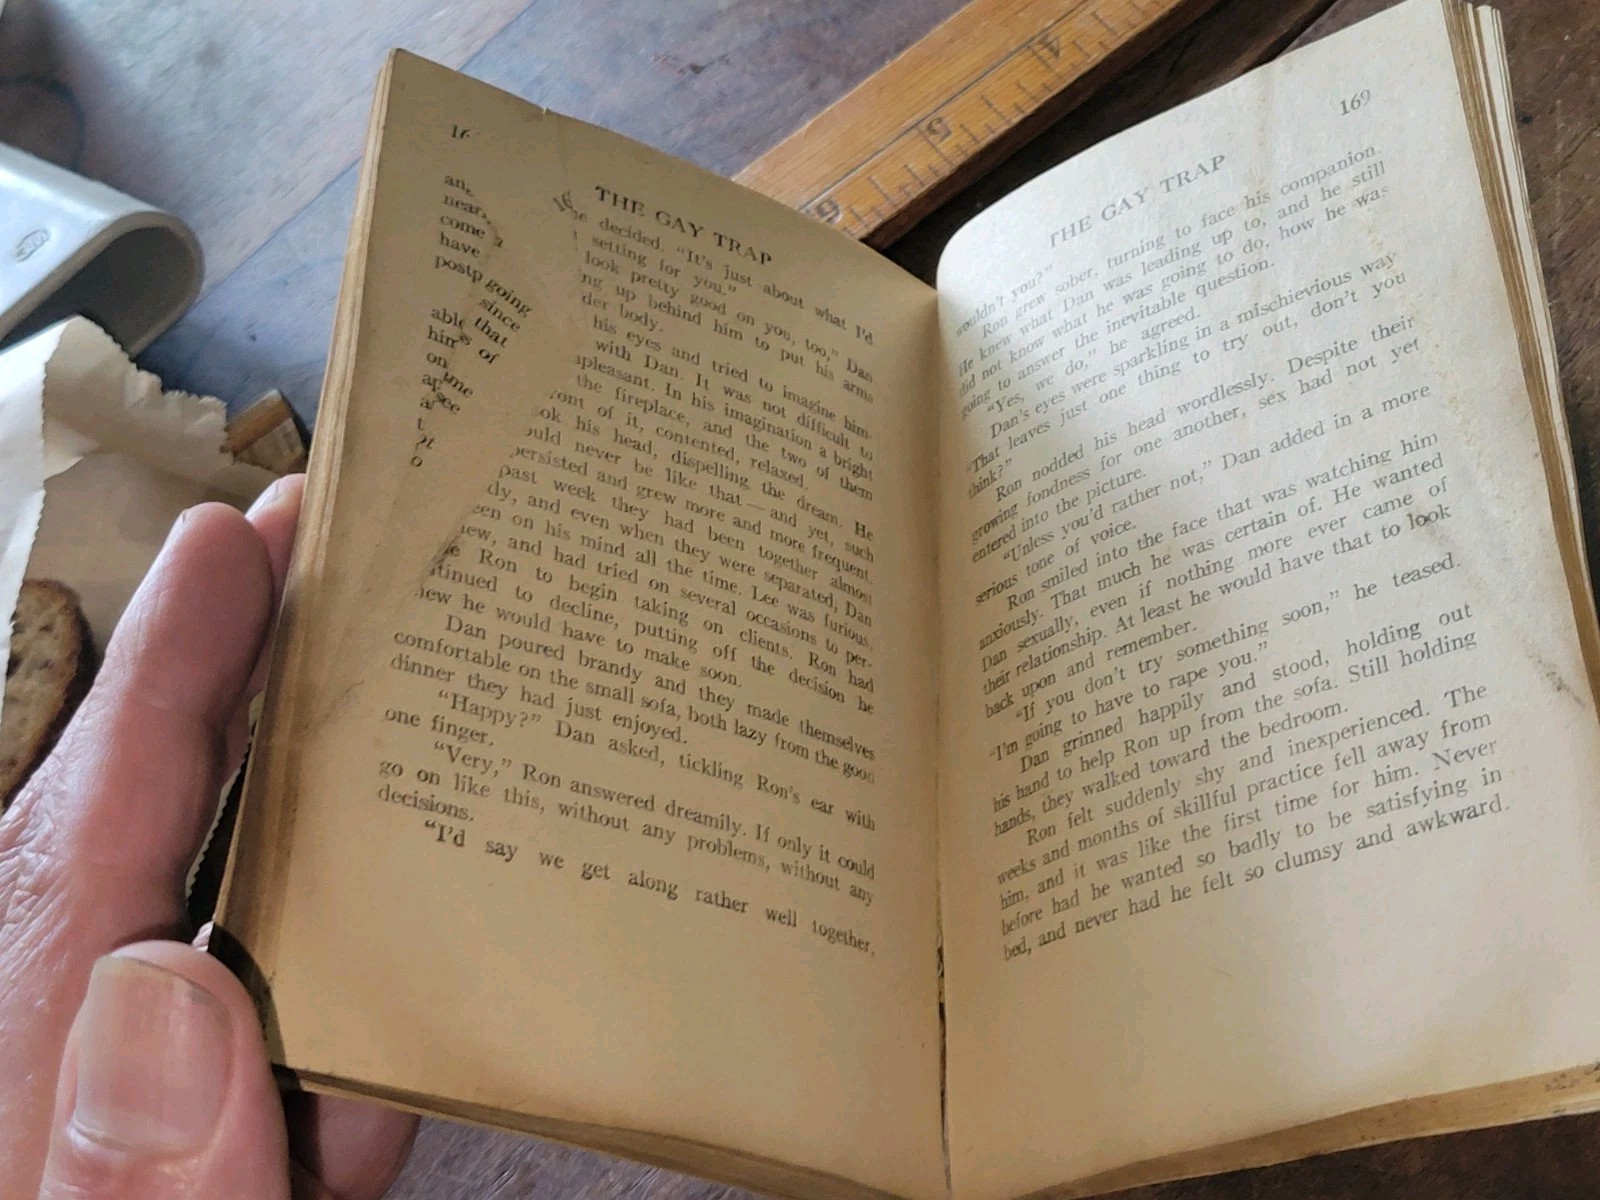 16
THE GAY TRAP
decided. "It's just about what I'd
setting for you."
look pretty good on you, too," Dan
up behind him to put his arms
body.
his eyes and tried to imagine him-
with Dan. It was not difficult to
In his imagination a bright
the fireplace, and the two of them
of it, contented, relaxed.
his head, dispelling the dream. He
never be like that — and yet, such
persisted and grew more and more frequent.
past week they had been together almost
and even when they were separated, Dan
on his mind all the time. Lee was furious,
and had tried on several occasions to per-
Ron to begin taking on clients. Ron had
to decline, putting off the decision he
he would have to make soon.
Dan poured brandy and they made themselves
comfortable on the small sofa, both lazy from the good
dinner they had just enjoyed.
"Happy?" Dan asked, tickling Ron's ear with
one finger.
"Very," Ron answered dreamily. If only it could
go on like this, without any problems, without any
decisions.
"I'd say we get along rather well together,
come
have
going
since
that
of
on
THE GAY TRAP
169
wouldn't you?"
Ron grew sober, turning to face his companion.
He knew what Dan was leading up to, and he still
did not know what he was going to do, how he was
going to answer the inevitable question.
"Yes, we do," he agreed.
Dan's eyes were sparkling in a mischievious way
"That leaves just one thing to try out, don't you
think?"
Ron nodded his head wordlessly. Despite their
growing fondness for one another, sex had not yet
entered into the picture.
"Unless you'd rather not," Dan added in a more
serious tone of voice.
Ron smiled into the face that was watching him
anxiously. That much he was certain of. He wanted
Dan sexually, even if nothing more ever came of
their relationship. At least he would have that to look
back upon and remember.
"If you don't try something soon," he teased.
"I'm going to have to rape you."
Dan grinned happily and stood, holding out
his hand to help Ron up from the sofa. Still holding
hands, they walked toward the bedroom.
Ron felt suddenly shy and inexperienced. The
weeks and months of skillful practice fell away from
him, and it was like the first time for him. Never
before had he wanted so badly to be satisfying in
bed, and never had he felt so clumsy and awkward.
4
5
6